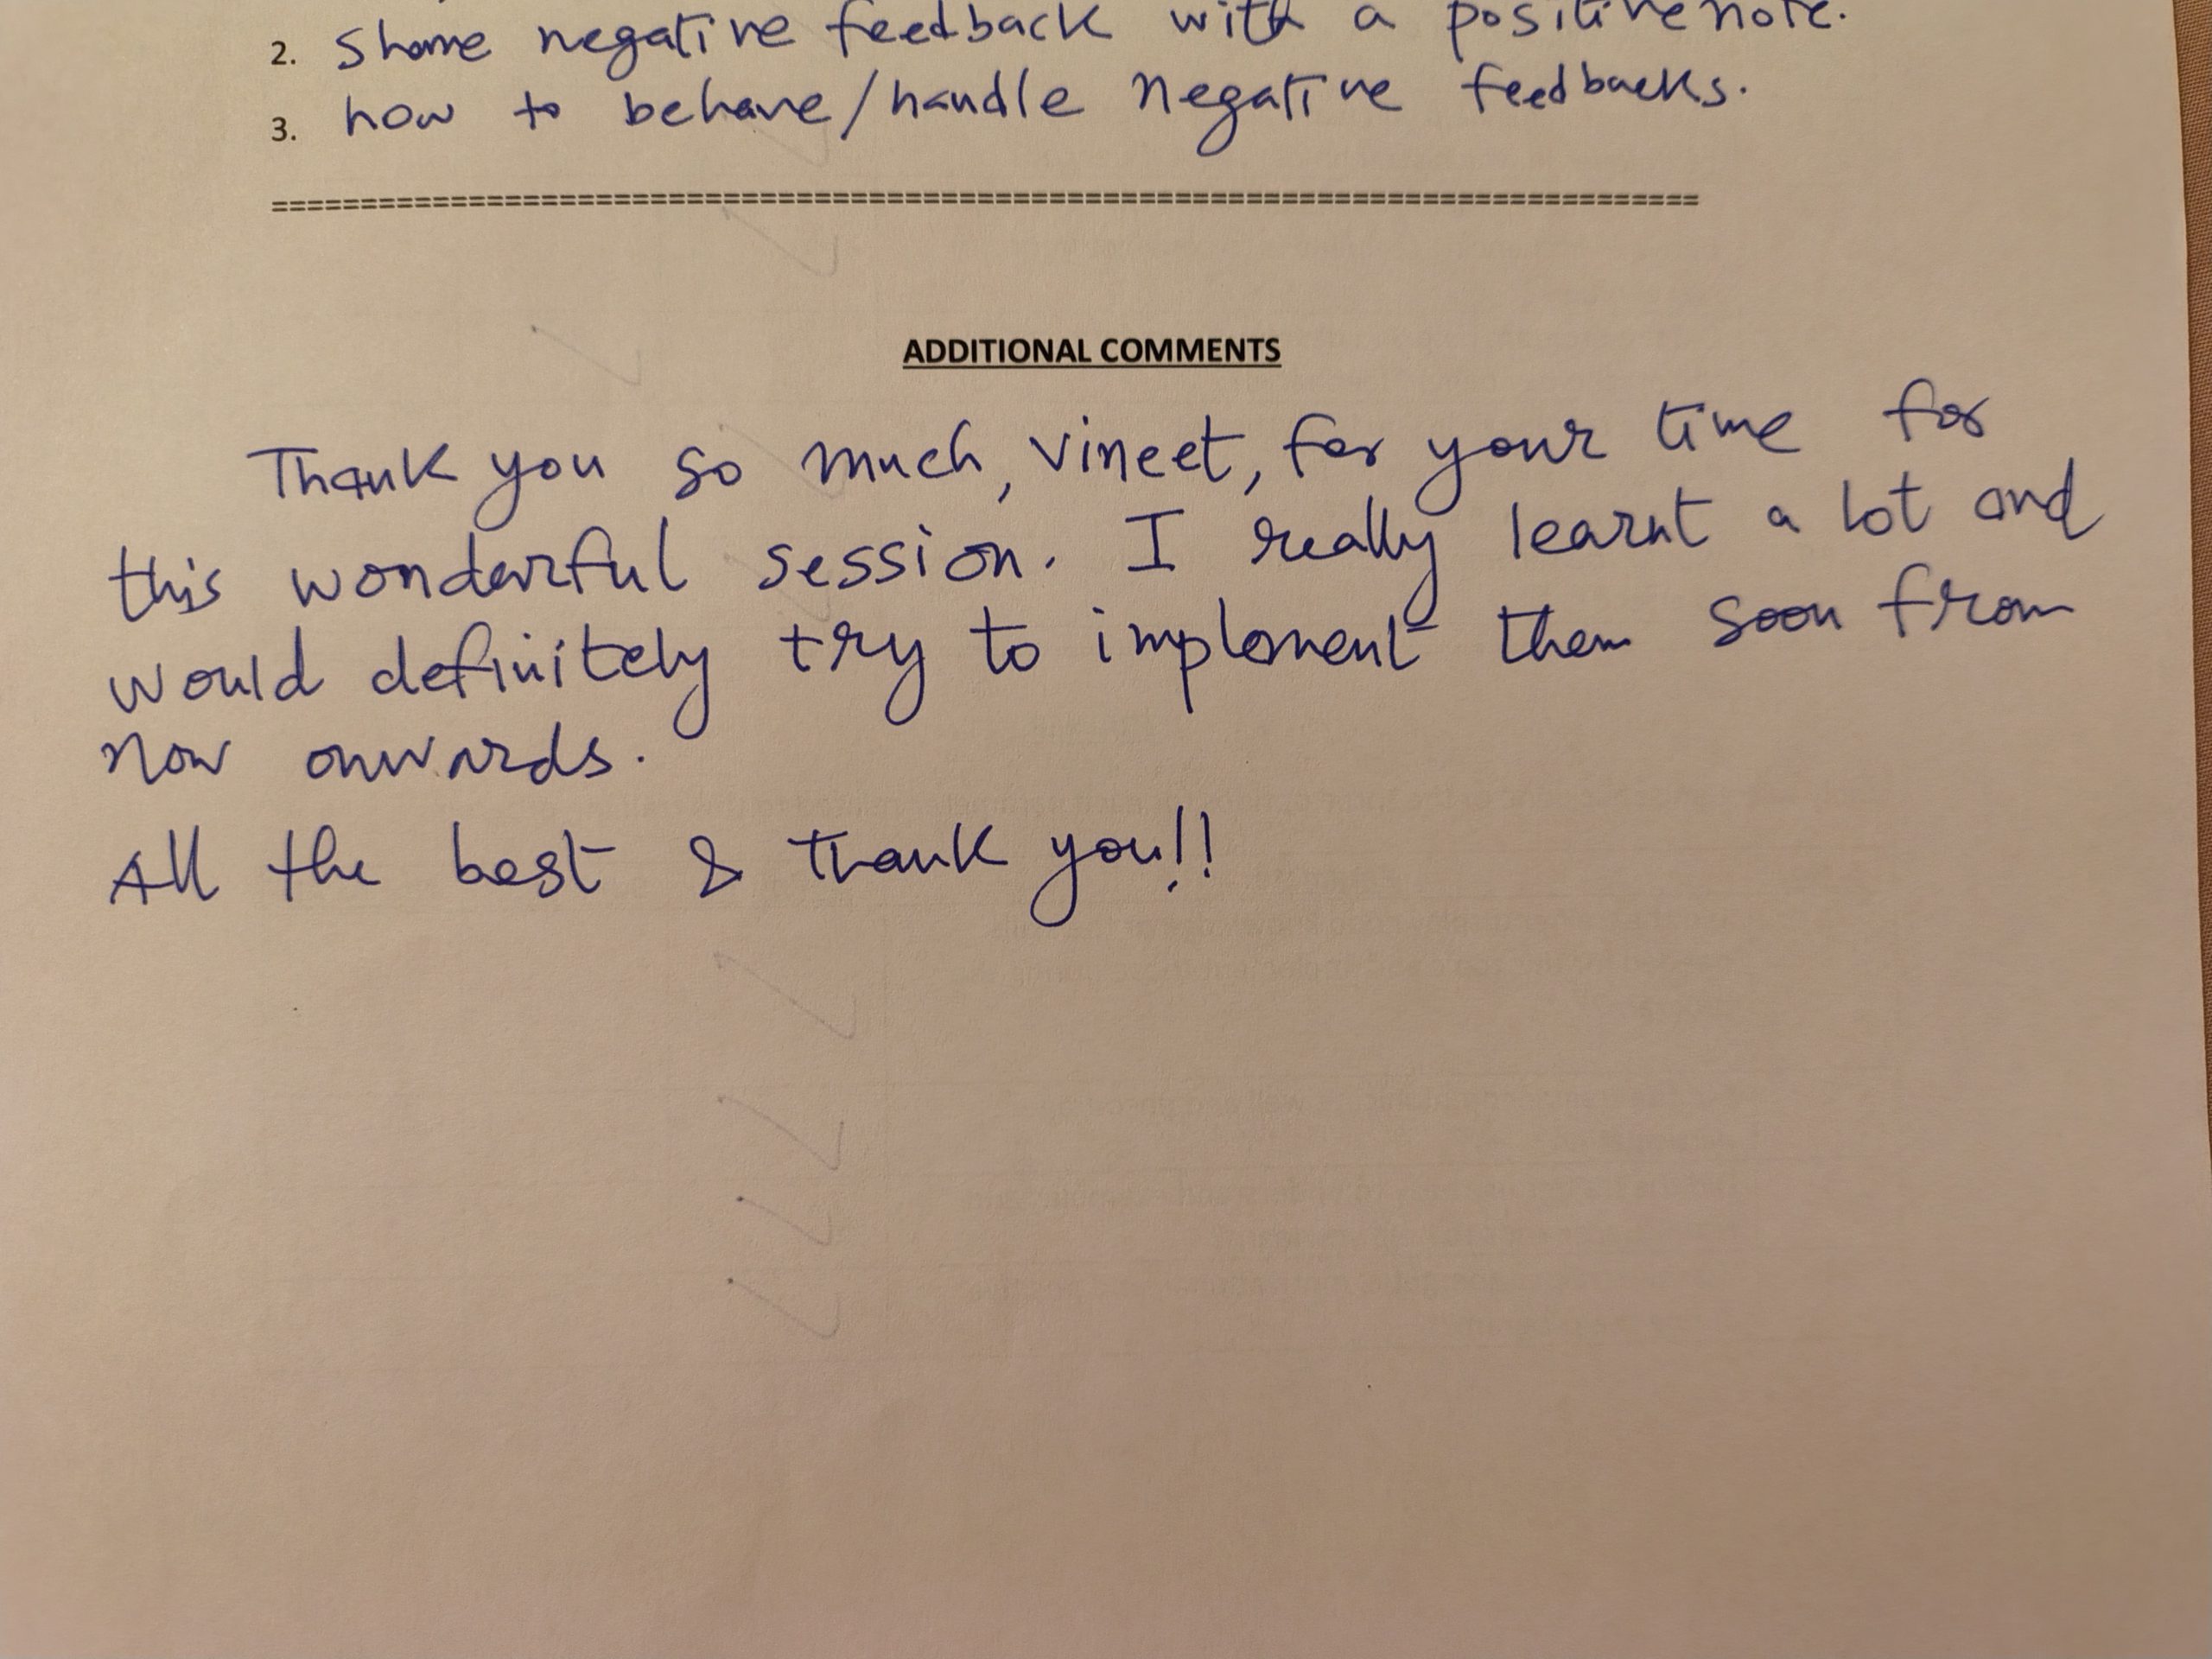 2. Share negative feedback with a positive note.
3. how to behave/handle negative feedbacks.
================================================================================
ADDITIONAL COMMENTS
Thank you so much, Vineet, for your time for
this wonderful session. I really learnt a lot and
would definitely try to implement them soon from
now onwards.
All the best & thank you!!